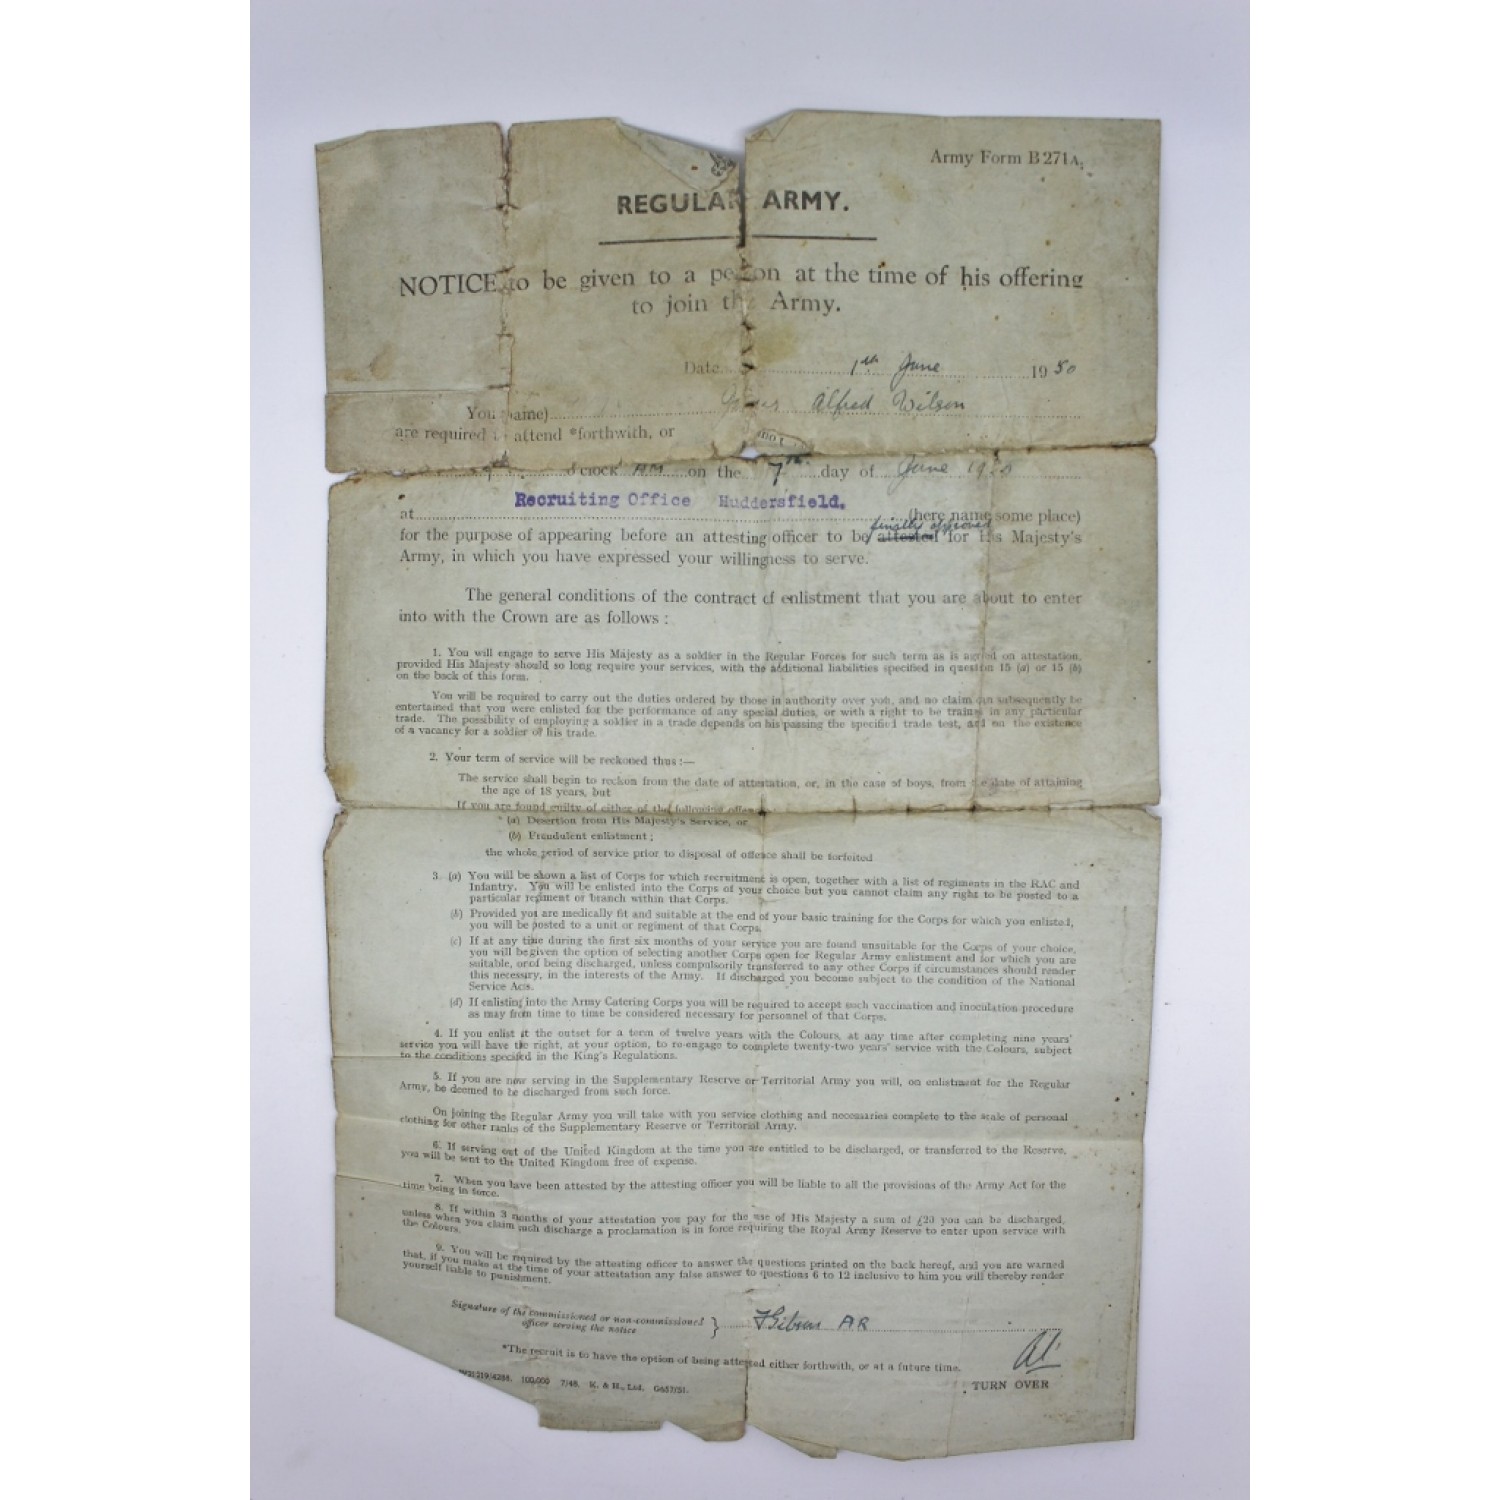 Army Form B 271A.
REGULAR ARMY.
NOTICE to be given to a person at the time of his offering
to join the Army.
Date 1th June 1950
You (name) Alfred Wilson
are required to attend *forthwith, or
o'clock AM on the 7th day of June 1950
Recruiting Office Huddersfield.
at (here name some place)
finally approved
for the purpose of appearing before an attesting officer to be attested for His Majesty's
Army, in which you have expressed your willingness to serve.
The general conditions of the contract of enlistment that you are about to enter
into with the Crown are as follows :
1. You will engage to serve His Majesty as a soldier in the Regular Forces for such term as is agreed on attestation,
provided His Majesty should so long require your services, with the additional liabilities specified in question 15 (a) or 15 (b)
on the back of this form.
You will be required to carry out the duties ordered by those in authority over you, and no claim can subsequently be
entertained that you were enlisted for the performance of any special duties, or with a right to be trained in any particular
trade. The possibility of employing a soldier in a trade depends on his passing the specified trade test, and on the existence
of a vacancy for a soldier of his trade.
2. Your term of service will be reckoned thus :—
The service shall begin to reckon from the date of attestation, or, in the case of boys, from the date of attaining
the age of 18 years, but
If you are found guilty of either of the following offen
(a) Desertion from His Majesty's Service, or
(b) Fraudulent enlistment ;
the whole period of service prior to disposal of offence shall be forfeited
3. (a) You will be shown a list of Corps for which recruitment is open, together with a list of regiments in the RAC and
Infantry. You will be enlisted into the Corps of your choice but you cannot claim any right to be posted to a
particular regiment or branch within that Corps.
(b) Provided you are medically fit and suitable at the end of your basic training for the Corps for which you enlisted,
you will be posted to a unit or regiment of that Corps.
(c) If at any time during the first six months of your service you are found unsuitable for the Corps of your choice,
you will be given the option of selecting another Corps open for Regular Army enlistment and for which you are
suitable, or of being discharged, unless compulsorily transferred to any other Corps if circumstances should render
this necessary, in the interests of the Army. If discharged you become subject to the condition of the National
Service Acts.
(d) If enlisting into the Army Catering Corps you will be required to accept such vaccination and inoculation procedure
as may from time to time be considered necessary for personnel of that Corps.
4. If you enlist at the outset for a term of twelve years with the Colours, at any time after completing nine years'
service you will have the right, at your option, to re-engage to complete twenty-two years' service with the Colours, subject
to the conditions specified in the King's Regulations.
5. If you are now serving in the Supplementary Reserve or Territorial Army you will, on enlistment for the Regular
Army, be deemed to be discharged from such force.
On joining the Regular Army you will take with you service clothing and necessaries complete to the scale of personal
clothing for other ranks of the Supplementary Reserve or Territorial Army.
6. If serving out of the United Kingdom at the time you are entitled to be discharged, or transferred to the Reserve,
you will be sent to the United Kingdom free of expense.
7. When you have been attested by the attesting officer you will be liable to all the provisions of the Army Act for the
time being in force.
8. If within 3 months of your attestation you pay for the use of His Majesty a sum of £20 you can be discharged,
unless when you claim such discharge a proclamation is in force requiring the Royal Army Reserve to enter upon service with
the Colours.
9. You will be required by the attesting officer to answer the questions printed on the back hereof, and you are warned
that, if you make at the time of your attestation any false answer to questions 6 to 12 inclusive to him you will thereby render
yourself liable to punishment.
Signature of the commissioned or non-commissioned
officer serving the notice } AR
*The recruit is to have the option of being attested either forthwith, or at a future time.
100,000 7/48. K. & H., Ltd. G657/51.
TURN OVER